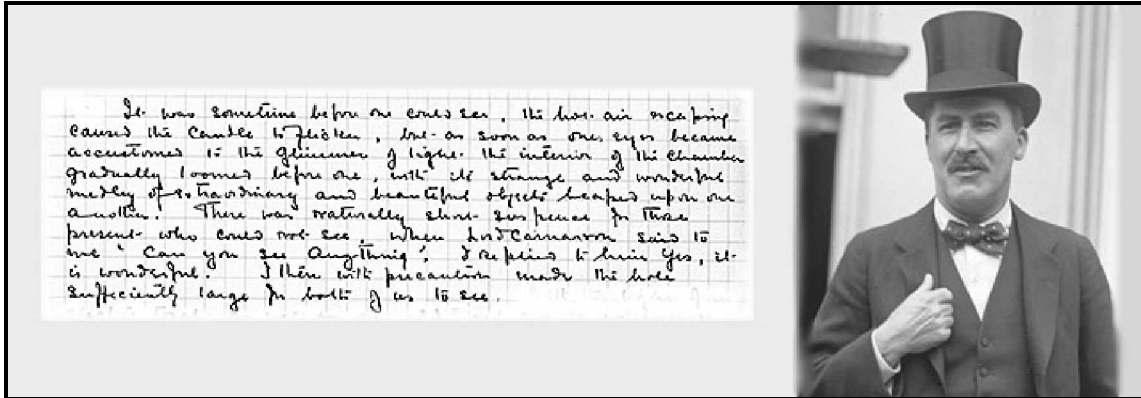 It was sometime before one could see, the hot air escaping
caused the candle to flicker, but as soon as one's eyes became
accustomed to the glimmer of light the interior of the chamber
gradually loomed before one, with its strange and wonderful
medley of extraordinary and beautiful objects heaped upon one
another. There was naturally short suspense for those
present who could not see, when Lord Carnarvon said to
me "Can you see anything". I replied to him Yes, it
is wonderful. I then with precaution made the hole
sufficiently large for both of us to see.